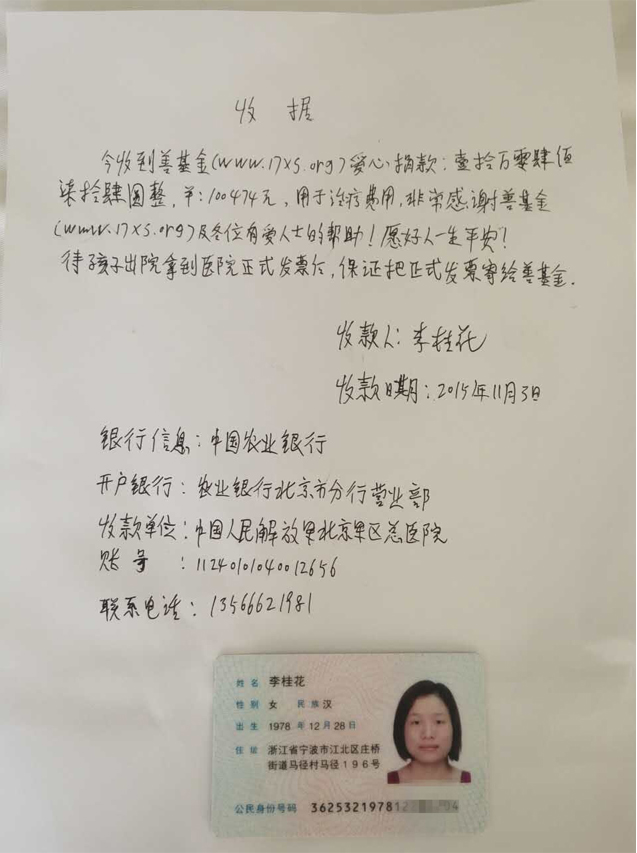 收 据
今收到善基金(www.17xs.org)爱心捐款:壹拾万零肆佰
柒拾肆圆整,¥:100474元,用于治疗费用,非常感谢善基金
(www.17xs.org)及各位有爱人士的帮助!愿好人一生平安!
待孩子出院拿到医院正式发票后,保证把正式发票寄给善基金.
收款人:李桂花
收款日期:2015年11月3日
银行信息:中国农业银行
开户银行:农业银行北京市分行营业部
收款单位:中国人民解放军北京军区总医院
账号:11240101040012656
联系电话:13566621981
姓名 李桂花
性别 女 民族 汉
出生 1978 年 12 月 28 日
住址 浙江省宁波市江北区庄桥
街道马径村马径196号
公民身份号码 362532197812